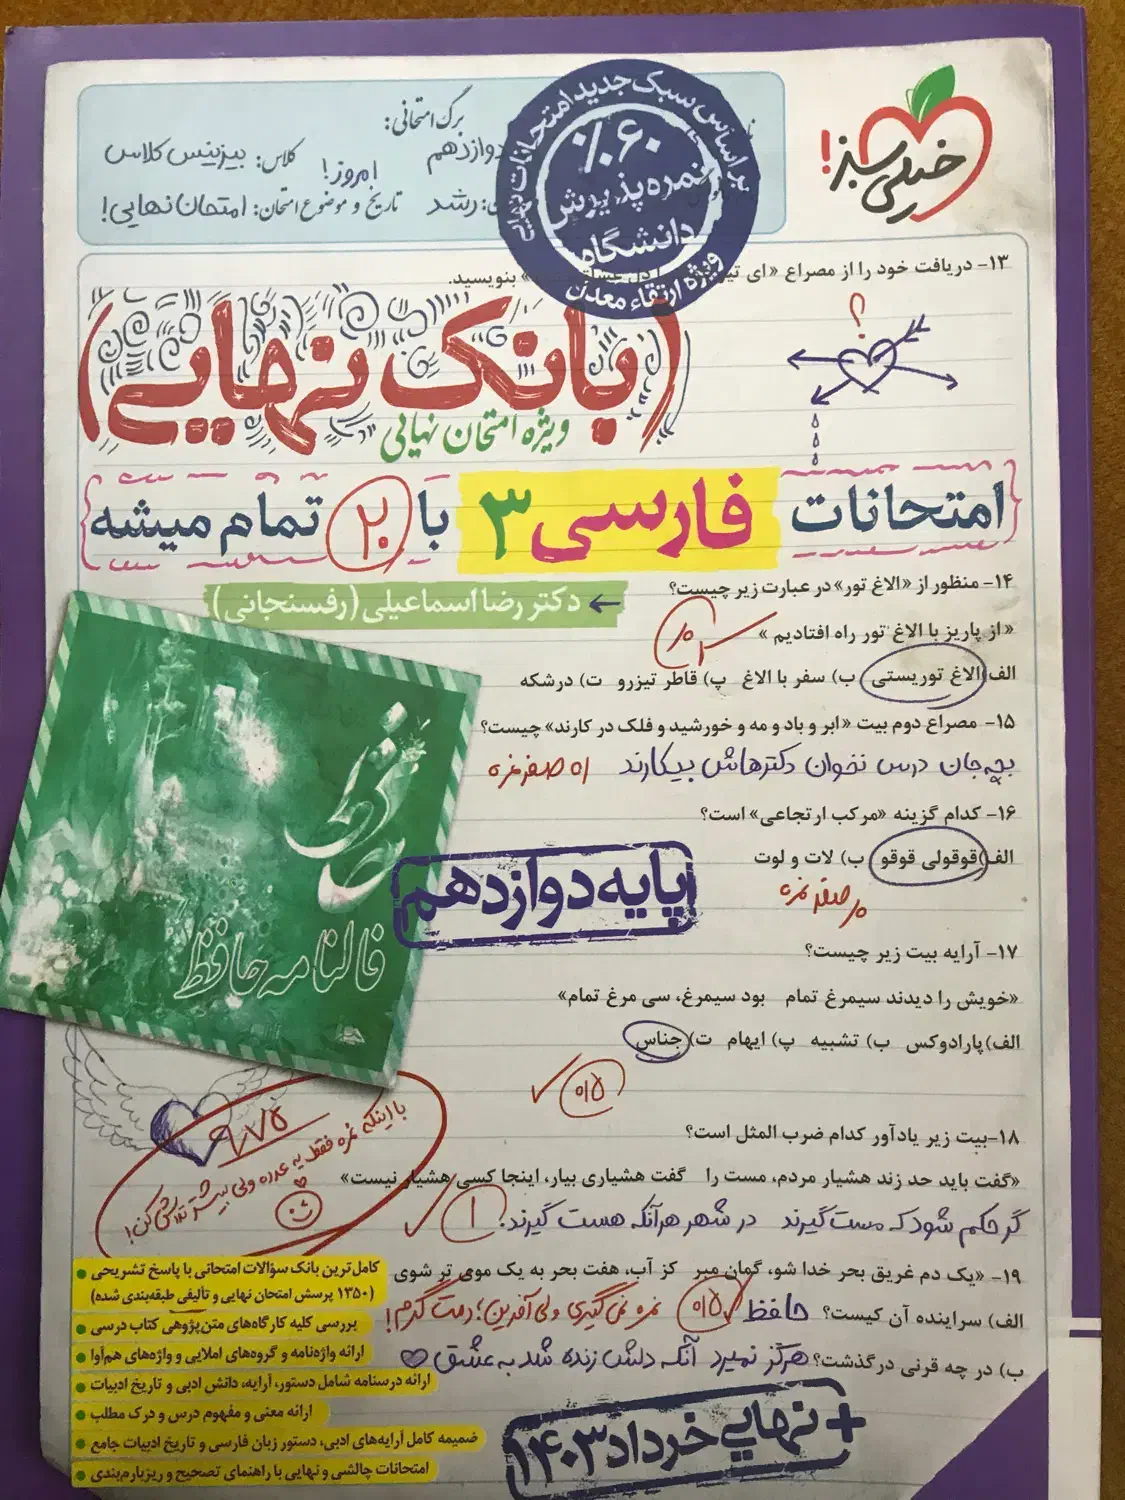 خیلی سبز!
برگ امتحانی:
دوازدهم
کلاس: بیزینس کلاس
رشد
تاریخ و موضوع امتحان: امروز! امتحان نهایی!
بر اساس سبک جدید امتحانات نهایی
۶۰٪
نمره پذیرش
دانشگاه
ویژه ارتقاء معدل
۱۳- دریافت خود را از مصراع «ای بنویسید.
؟
(بانک نهایی)
ویژه امتحان نهایی
امتحانات فارسی ۳ با ۲۰ تمام میشه
← دکتر رضا اسماعیلی (رفسنجانی)
۱۴- منظور از «الاغ تور» در عبارت زیر چیست؟
«از پاریز با الاغ تور راه افتادیم»
الف) الاغ توریستی ب) سفر با الاغ پ) قاطر تیزرو ت) درشکه
۱۵- مصراع دوم بیت «ابر و باد و مه و خورشید و فلک در کارند» چیست؟
بچه جان درس نخوان دکترهاش بیکارند
۱۶- کدام گزینه «مرکب ارتجاعی» است؟
الف) قوقولی قوقو ب) لات و لوت
صفر نمره
پایه دوازدهم
حافظ
فالنامه حافظ
۱۷- آرایه بیت زیر چیست؟
«خویش را دیدند سیمرغ تمام بود سیمرغ، سی مرغ تمام»
الف) پارادوکس ب) تشبیه پ) ایهام ت) جناس
۰/۵
۱۸- بیت زیر یادآور کدام ضرب المثل است؟
«گفت باید حد زند هشیار مردم، مست را گفت هشیاری بیار، اینجا کسی هشیار نیست»
گر حکم شود که مست گیرند در شهر هر آنکه هست گیرند.
۱
۹/۷۵
با اینکه نمره فقط یه عدده ولی بیشتر تلاش کن!
۱۹- «یک دم غریق بحر خدا شو، گمان مبر کز آب، هفت بحر به یک موی تر شوی
الف) سراینده آن کیست؟ حافظ ۰/۵ نمره نمی‌گیری ولی آفرین؛ دمت گرم!
ب) در چه قرنی درگذشت؟ هرگز نمیرد آنکه دلش زنده شد به عشق
کامل‌ترین بانک سؤالات امتحانی با پاسخ تشریحی
(۱۳۵۰ پرسش امتحان نهایی و تألیفی طبقه‌بندی شده)
بررسی کلیه کارگاه‌های متن‌پژوهی کتاب درسی
ارائه واژه‌نامه و گروه‌های املایی و واژه‌های هم‌آوا
ارائه درسنامه شامل دستور، آرایه، دانش ادبی و تاریخ ادبیات
ارائه معنی و مفهوم درس و درک مطلب
ضمیمه کامل آرایه‌های ادبی، دستور زبان فارسی و تاریخ ادبیات جامع
امتحانات چالشی و نهایی با راهنمای تصحیح و ریزبارم‌بندی
+ نهایی خرداد ۱۴۰۳